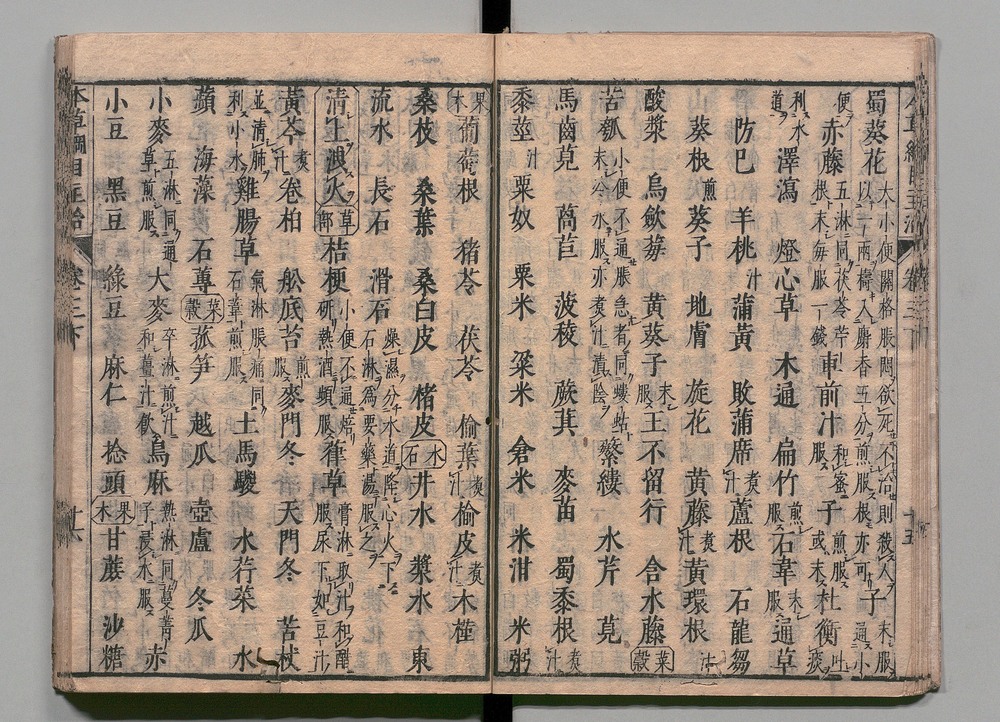 蜀葵花 大小便關格脹悶欲死不治則殺人 以二兩擣入麝香五分煎服根亦可 子 末服通小
便 赤藤 五淋同茯苓苧根末每服一錢 車前汁 和蜜服 子 煎服或末 杜衡 吐痰
利水道 澤瀉 燈心草 木通 扁竹 煎服 石韋 末服 通草
防巳 羊桃 汁 蒲黃 敗蒲席 煮汁 蘆根 石龍芻
葵根 煎 葵子 地膚 旋花 黃藤 煮汁 黃環根 汁
酸漿 烏蘞莓 黃葵子 末服 王不留行 合水藤 菜穀
苦瓠 小便不通脹急者同螻蛄末冷水服亦煮汁漬陰 蘩縷 水芹 莧
馬齒莧 萵苣 菠薐 蕨萁 麥苗 蜀黍根 煮汁
黍莖 汁 粟奴 粟米 粱米 倉米 米泔 米粥
果木 葡萄根 豬苓 茯苓 榆葉 煮汁 榆皮 煮汁 木槿
桑枝 桑葉 桑白皮 楮皮 水石 井水 漿水 東
流水 長石 滑石 燥濕分水道降心火下石淋為要藥湯服之
清上洩火 草部 桔梗 小便不通焙研熱酒頻服 葎草 膏淋取汁和醋服尿下如豆汁
黃芩 煮汁 卷柏 船底苔 煎服 麥門冬 天門冬 苦杖
並清肺利小水 雞腸草 氣淋脹痛同石韋煎服 土馬騣 水荇菜 水
蘋 海藻 石蓴 菜穀 菰笋 越瓜 壺盧 冬瓜
小麥 五淋同通草煎服 大麥 卒淋煎汁和薑汁飲 烏麻 熱淋同蔓菁子浸水服 赤
小豆 黑豆 綠豆 麻仁 捻頭 果木 甘蔗 沙糖
卷三下